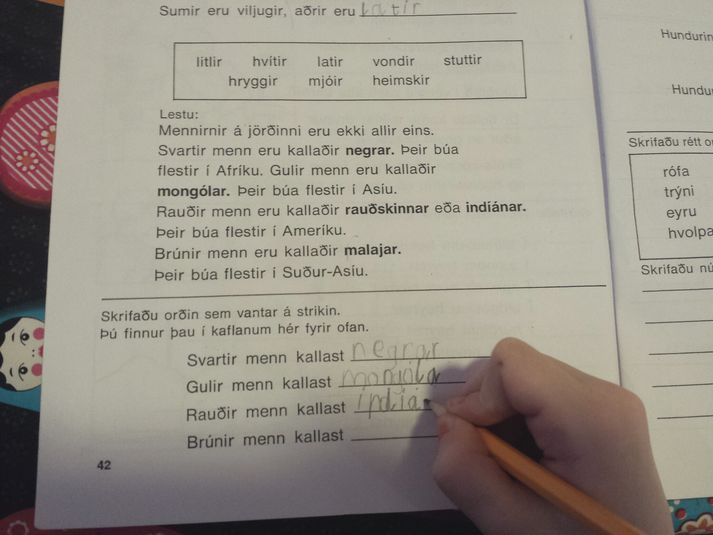 Sumir eru viljugir, aðrir eru latir
litlir hvítir latir vondir stuttir
hryggir mjóir heimskir
Lestu:
Mennirnir á jörðinni eru ekki allir eins.
Svartir menn eru kallaðir negrar. Þeir búa
flestir í Afríku. Gulir menn eru kallaðir
mongólar. Þeir búa flestir í Asíu.
Rauðir menn eru kallaðir rauðskinnar eða indíánar.
Þeir búa flestir í Ameríku.
Brúnir menn eru kallaðir malajar.
Þeir búa flestir í Suður-Asíu.
Skrifaðu orðin sem vantar á strikin.
Þú finnur þau í kaflanum hér fyrir ofan.
Svartir menn kallast negrar
Gulir menn kallast mongóla
Rauðir menn kallast indíá
Brúnir menn kallast
42
Hundurin
Hundu
Skrifaðu rétt o
rófa
trýni
eyru
hvolpa
Skrifaðu nú